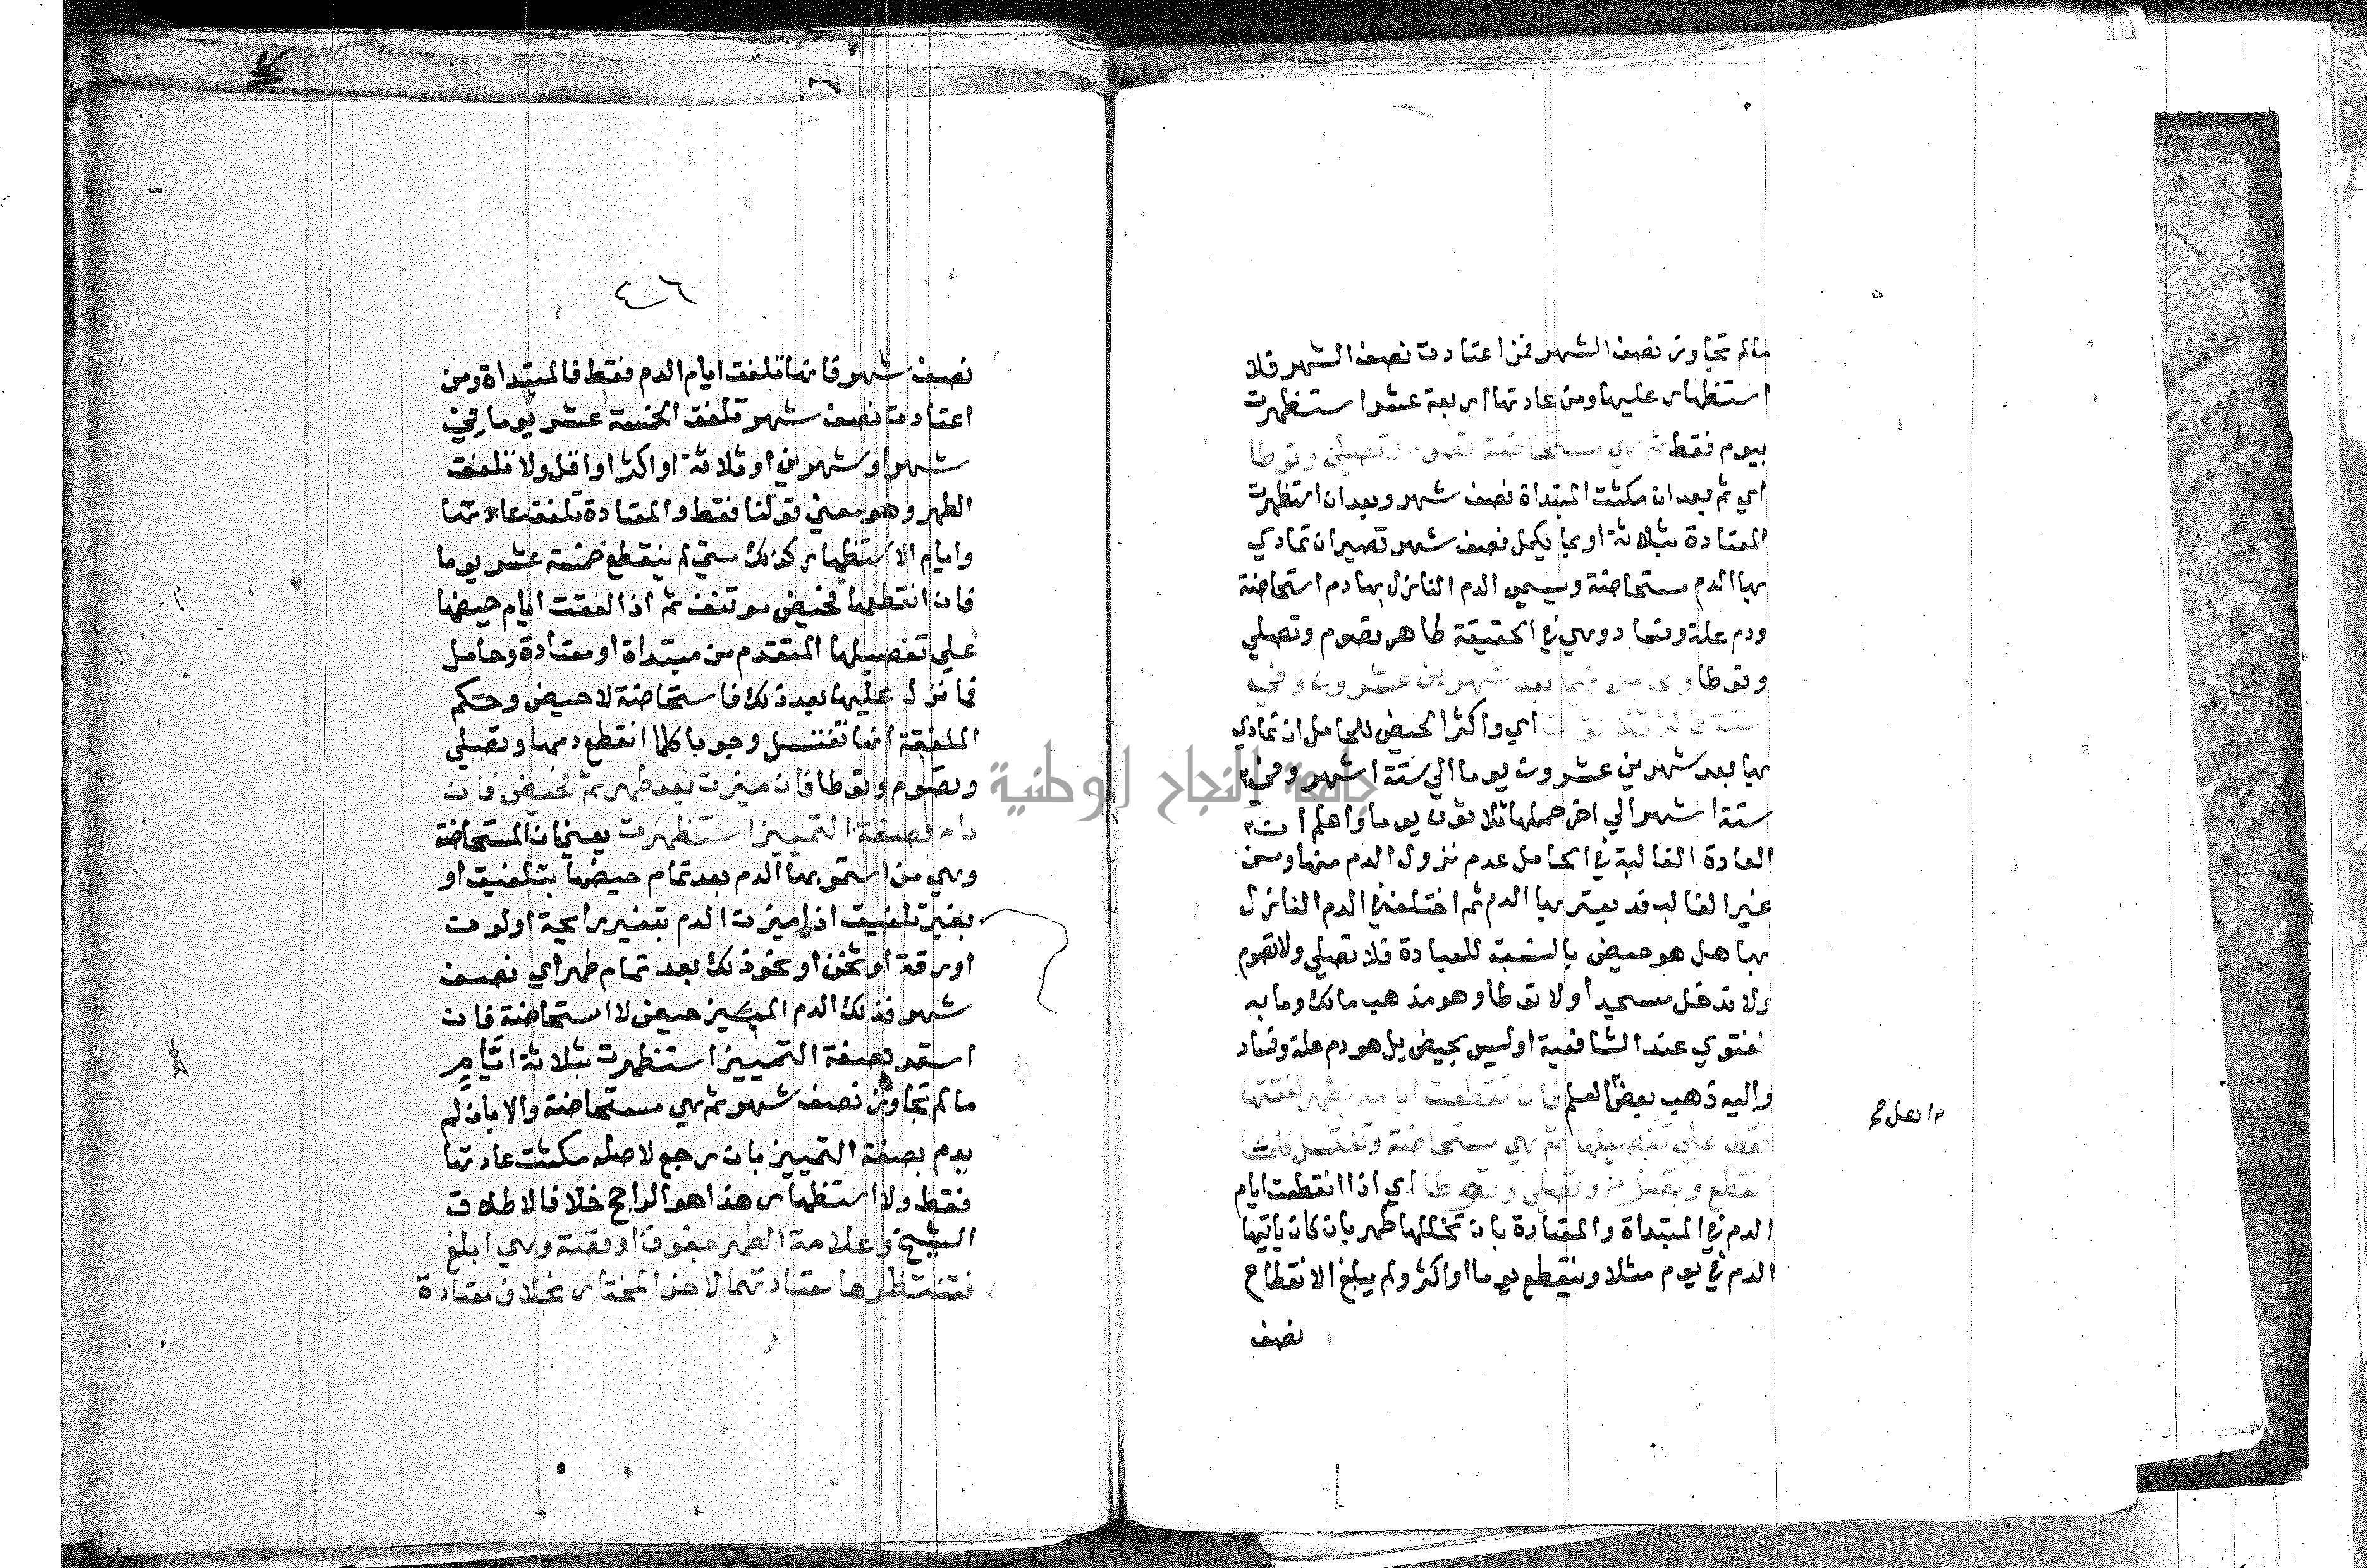 مالم تجاوز نصف الشهر فمن اعتادت نصف الشهر فلا
استظهار عليها ومن عادتها اربعة عشر استظهرت
بيوم فقط ثم هي مستحاضة تصوم وتصلي وتوطا
اي ثم بعد ان مكثت المبتداة نصف شهر وبعد ان استظهرت
المعتادة بثلاثة او بما يكمل نصف شهر تصير ان تمادي
بها الدم مستحاضة ويسمى الدم النازل بها دم استحاضة
ودم علة وفساد وهي في الحقيقة طاهر تصوم وتصلي
وتوطا فيما بعد شهرين عشرون وفي
ستة اي واكثر الحيض للحامل ان تمادي
بها بعد شهرين عشرون يوما الي ستة اشهر وفي
ستة اشهر الي اخر حملها ثلاثون يوما واعلم ان
العادة الغالبة في الحامل عدم نزول الدم منها ومن
غير الغالب قد يعتريها الدم ثم اختلف في الدم النازل
بها هل هو حيض بالنسبة للعبادة فلا تصلي ولا تصوم
ولا تدخل مسجدا ولا توطا وهو مذهب مالك وما به
الفتوي عند الشافعية او ليس بحيض بل هو دم علة وفساد
واليه ذهب بعض العلم فان تقطعت ايامه بطهر لفقتها
فقط علي تفصيلها ثم هي مستحاضة وتغتسل كلما
انقطع وتصلي وتوطا اي اذا انقطعت ايام
الدم في المبتداة والمعتادة بان تخللها طهر بان كان ياتيها
الدم في يوم مثلا وينقطع يوما او اكثر ولم يبلغ الانقطاع
نصف
٤٦
نصف شهر فانها تلفق ايام الدم فقط فالمبتداة ومن
اعتادت نصف شهر تلفق الخمسة عشر يوما في
شهر او شهرين او ثلاثة او اكثر او اقل ولا تلفق
الطهر وهو معني قولنا فقط والمعتادة تلفق عادتها
وايام الاستظهار كذلك متي لم ينقطع خمسة عشر يوما
فان انقطعها فحيض موتنف ثم اذا لفقت ايام حيضها
علي تفصيلها المتقدم من مبتداة او معتادة وحامل
فما نزل عليها بعد ذلك فاستحاضة لا حيض وحكم
الملفقة انها تغتسل وجوبا كلما انقطع دمها وتصلي
وتصوم وتوطا فان ميزت بعد طهر ثم تحيض فان
دام بصفة التمييز استظهرت يعني ان المستحاضة
وهي من استمر بها الدم بعد تمام حيضها بتلفيق او
بغير تلفيق اذا ميزت الدم بتغير رايحة او لون
او رقة او ثخن او نحو ذلك بعد تمام طهر اي نصف
شهر فذلك الدم المميز حيض لا استحاضة فان
استمر بصفة التمييز استظهرت بثلاثة ايام
مالم تجاوز نصف شهر ثم هي مستحاضة والا بان لم
يدم بصفة التمييز بان رجع لاصله مكثت عادتها
فقط ولا استظهار هذا هو الراجح خلافا لاطلاق
الشيخ وعلامة الطهر جفوف او قصة وهي ابلغ
فتنتظرها معتادتهما لاخر المختار بخلاف معتادة
جامعة النجاح الوطنية